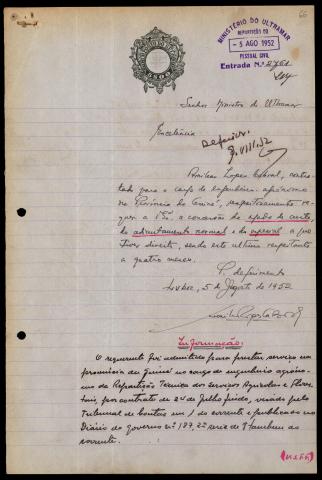 66
MINISTÉRIO DO ULTRAMAR
REPARTIÇÃO DO
- 5 AGO 1952
PESSOAL CIVIL
Entrada N.º
Senhor Ministro do Ultramar
Excelência
Deferido.
8.VIII.52
Amílcar Lopes Cabral, contra-
tado para o cargo de engenheiro agrónomo
na Província da Guiné, respeitosamente re-
quer a V. Ex.ª a concessão de ajuda de custo,
do adiantamento normal e do especial a que
tiver direito, sendo este último respeitante
a quatro meses.
P. deferimento
Lisboa, 5 de Agosto de 1952
Informação:
O requerente foi admitido para prestar serviço na
província da Guiné no cargo de engenheiro agróno-
mo da Repartição Técnica dos Serviços Agrícolas e Flores-
tais, por contrato de 24 de Julho findo, visado pelo
Tribunal de Contas em 1 do corrente e publicado no
Diário do governo nº 187, 2ª serie de 9 tambem do
corrente.